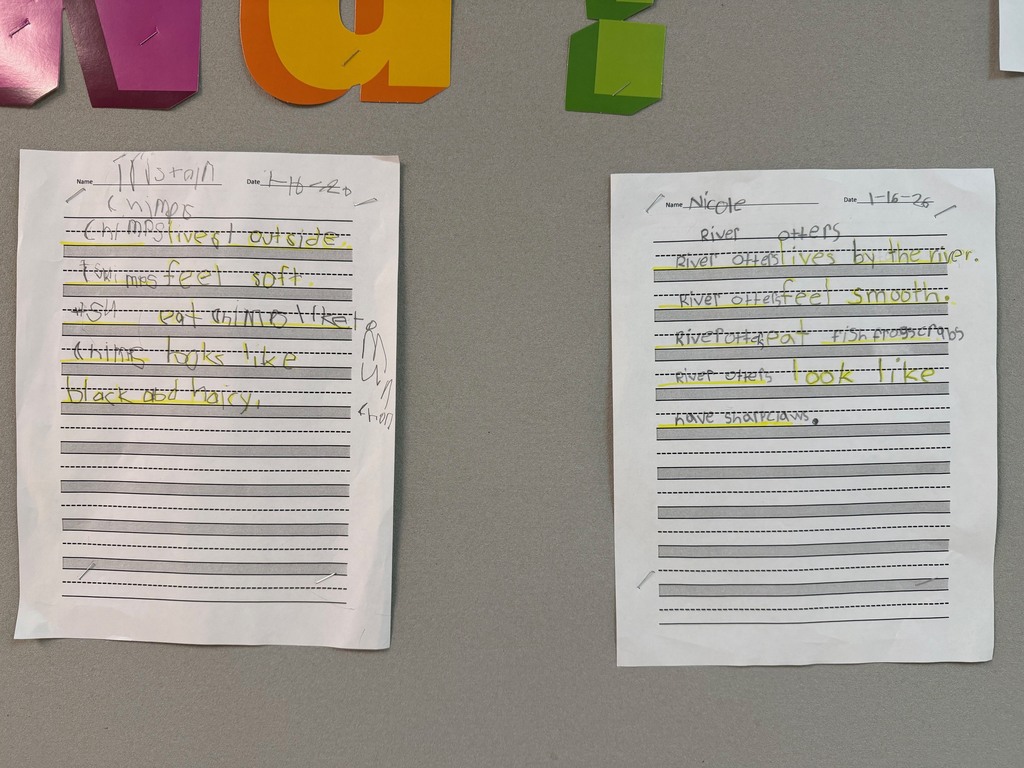 a
Name Tristain Date 1-16-26
Chimps
Chimps livest outside.
Chimps feel soft.
eat animals like
Chimps looks like
black and haicy.
Name Nicole Date 1-16-26
River otters
River otters lives by the river.
River otters feel smooth.
River otters eat fish frogs crabs
River otters look like
have sharp claws.